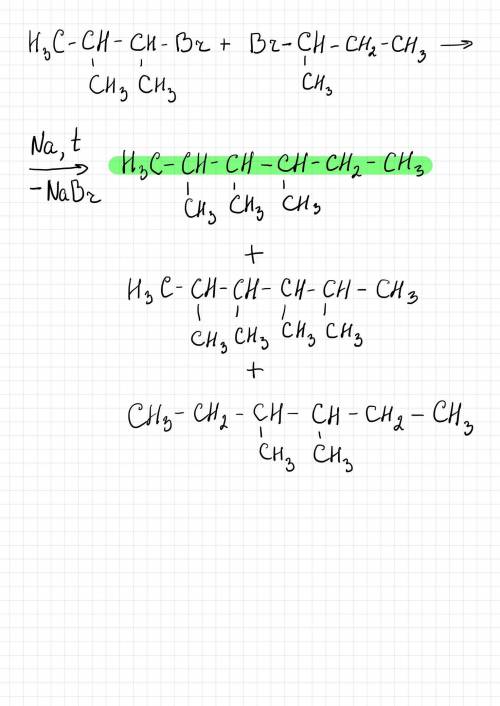 H₃C - CH - CH - Br + Br - CH - CH₂ - CH₃ →
CH₃ CH₃ CH₃
Na, t
- NaBr
H₃C - CH - CH - CH - CH₂ - CH₃
CH₃ CH₃ CH₃
+
H₃C - CH - CH - CH - CH - CH₃
CH₃ CH₃ CH₃ CH₃
+
CH₃ - CH₂ - CH - CH - CH₂ - CH₃
CH₃ CH₃